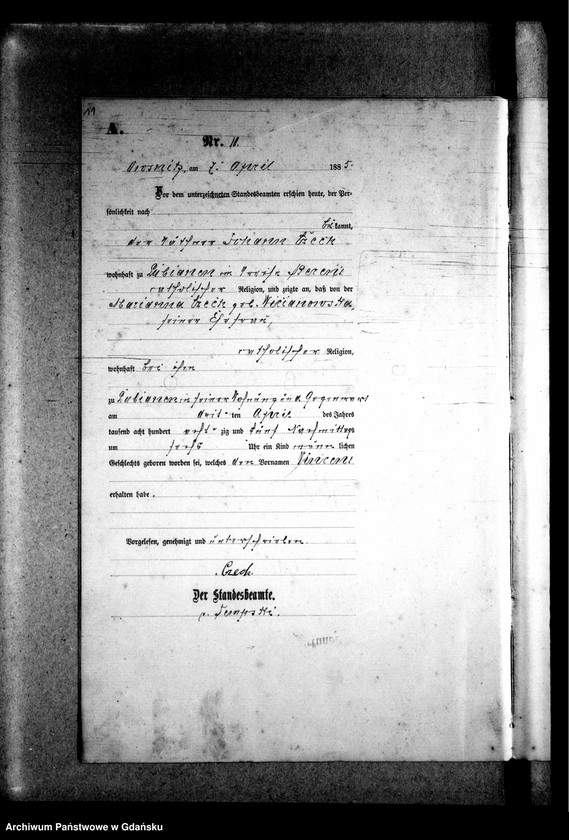 A.
Nr. 11.
am 7. April 1885.
Vor dem unterzeichneten Standesbeamten erschien heute, der Per-
sönlichkeit nach
bekannt,
der Käthner Johann Czech
wohnhaft zu Lubianen im Kreise Berent
catholischer Religion, und zeigte an, daß von der
Marianna Czech geb.
seiner Ehefrau,
catholischer Religion,
wohnhaft bei ihm
zu Lubianen in seiner Wohnung in Gegenwart
am dritten April des Jahres
tausend acht hundert achtzig und fünf Nachmittags
um sechs Uhr ein Kind männlichen
Geschlechts geboren worden sei, welches den Vornamen Vincent
erhalten habe.
Vorgelesen, genehmigt und unterschrieben
Czech
Der Standesbeamte.
Archiwum Państwowe w Gdańsku